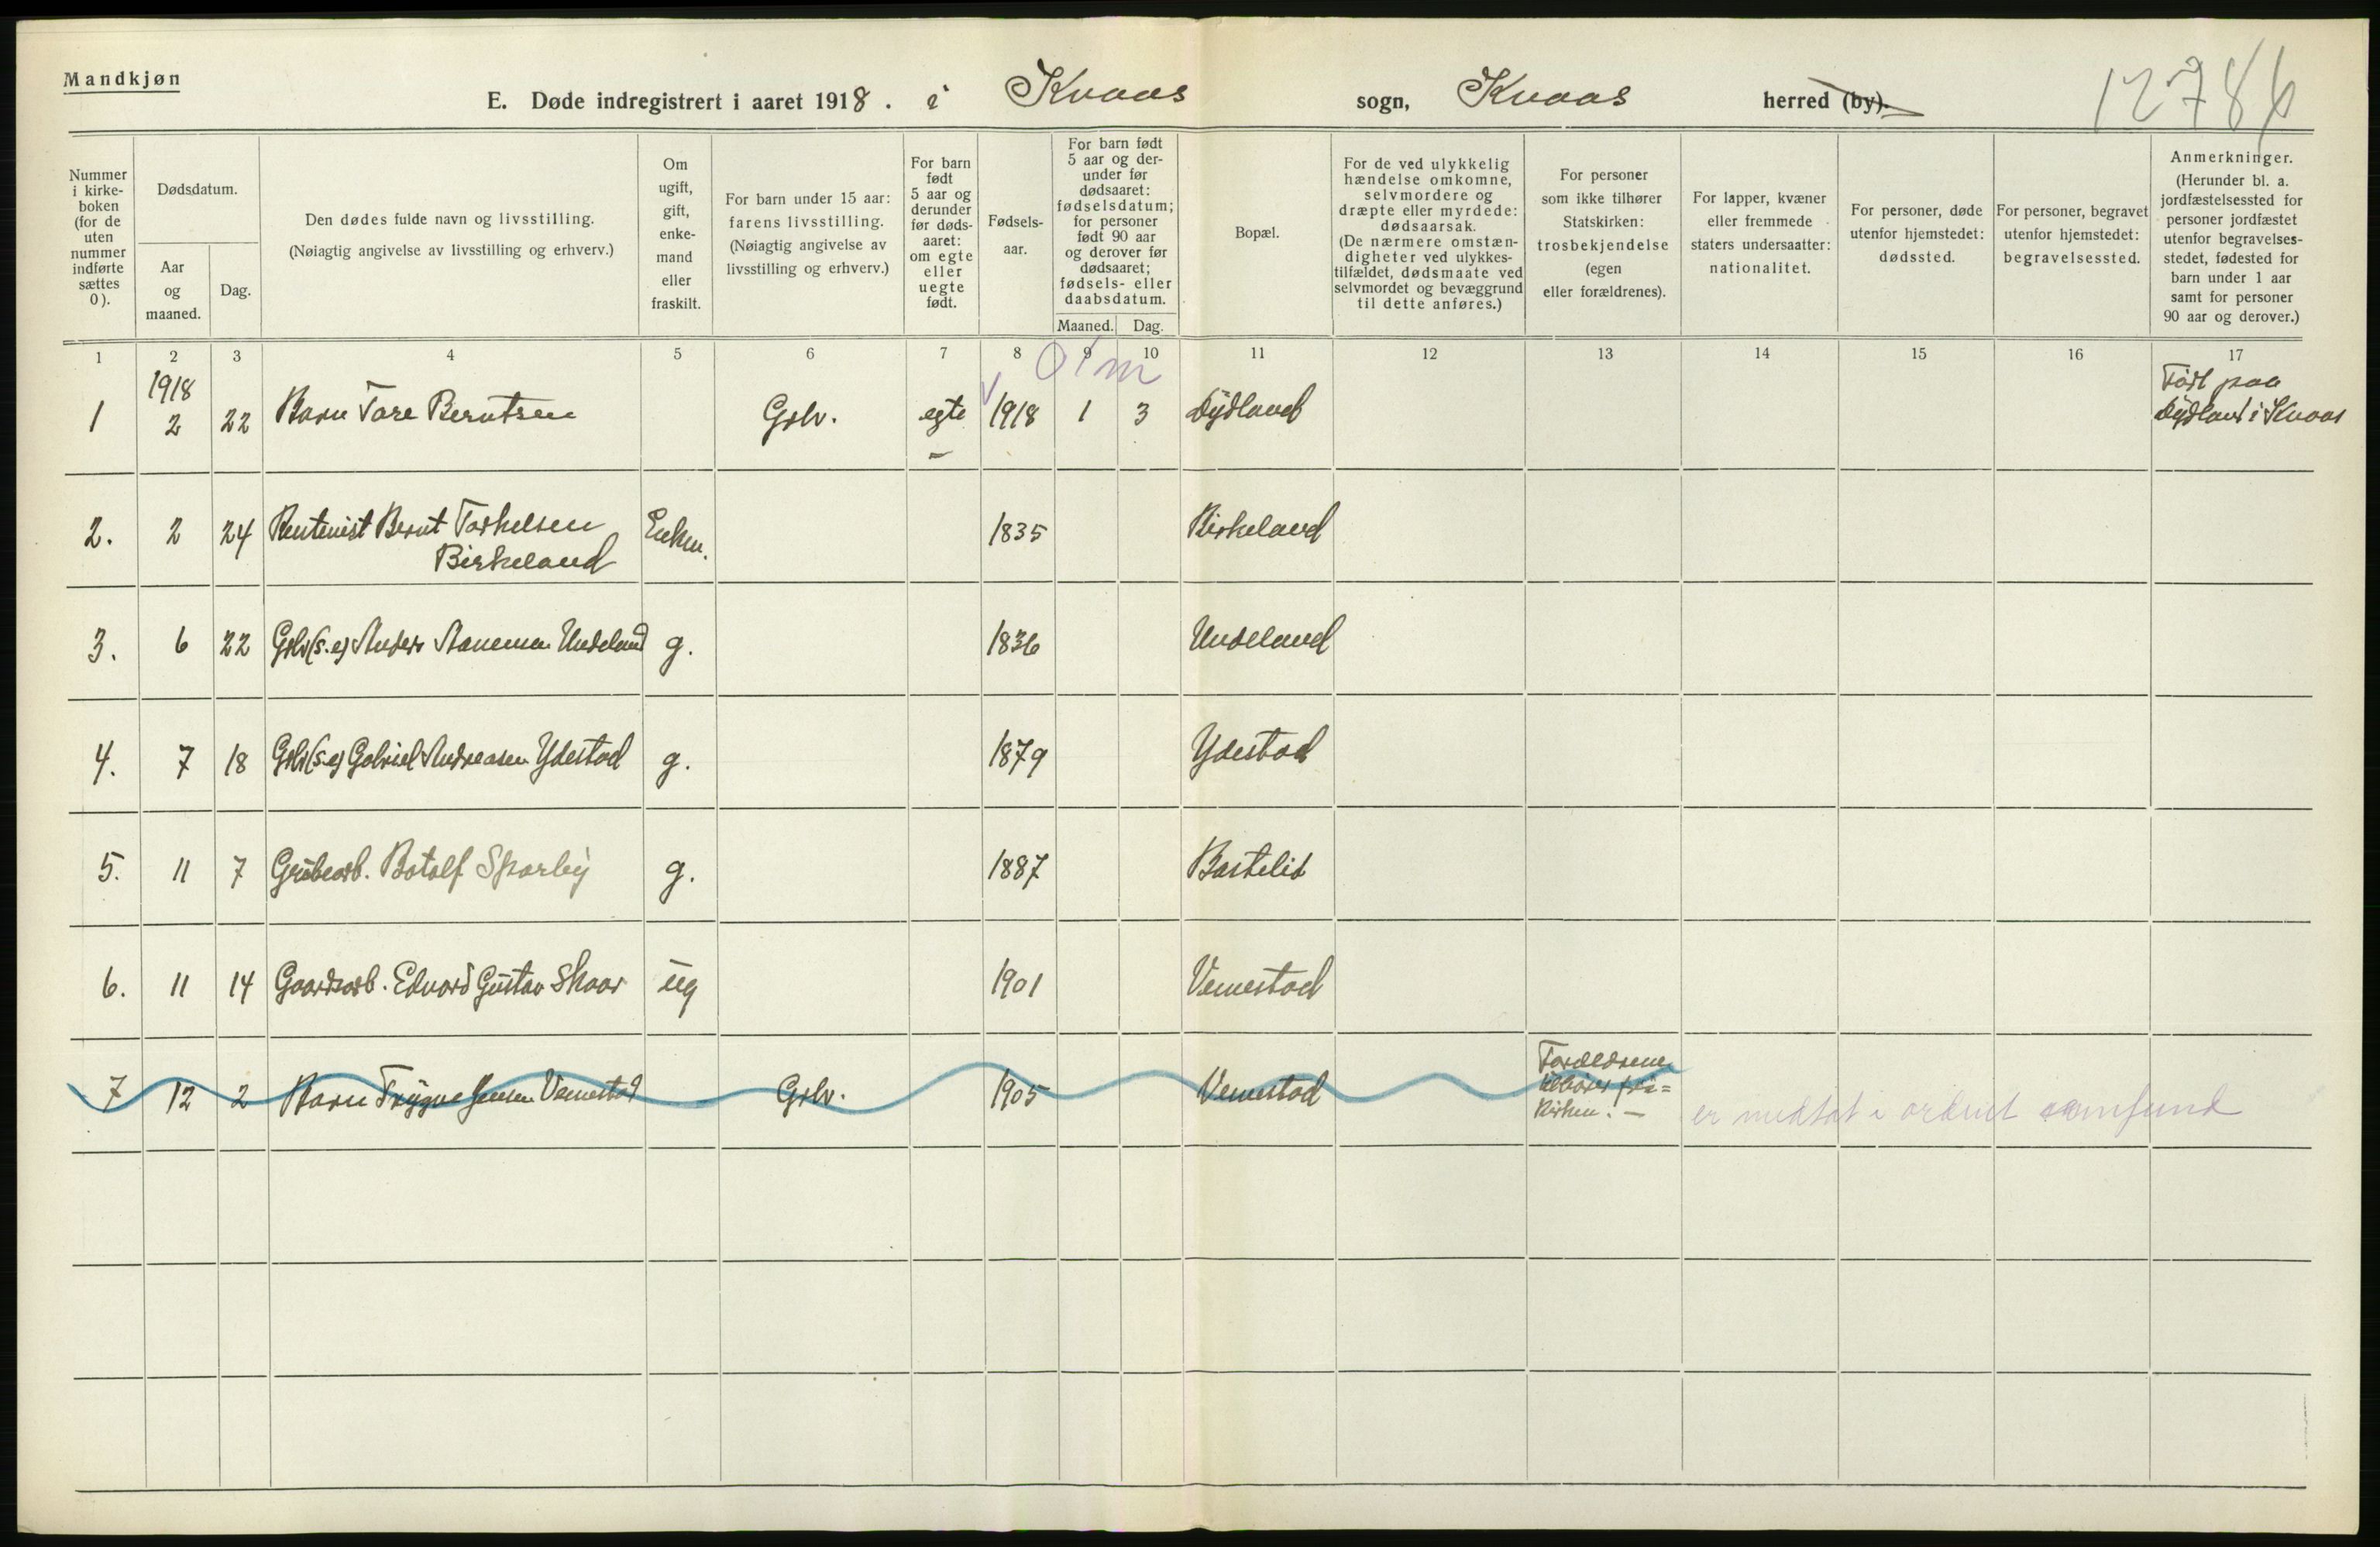 Mandkjøn
E. Døde indregistrert i aaret 1918. i Kvaas sogn, Kvaas herred (by).
12786
Nummer i kirke-boken (for de uten nummer indførte sættes 0).
Dødsdatum.
Aar og maaned.
Dag.
Den dødes fulde navn og livsstilling.
(Nøiagtig angivelse av livsstilling og erhverv.)
Om ugift, gift, enke-mand eller fraskilt.
For barn under 15 aar: farens livsstilling.
(Nøiagtig angivelse av livsstilling og erhverv.)
For barn født 5 aar og derunder før døds-aaret: om egte eller uegte født.
Fødsels-aar.
For barn født 5 aar og der-under før dødsaaret: fødselsdatum; for personer født 90 aar og derover før dødsaaret; fødsels- eller daabsdatum.
Maaned. Dag.
Bopæl.
For de ved ulykkelig hændelse omkomne, selvmordere og dræpte eller myrdede: dødsaarsak.
(De nærmere omstæn-digheter ved ulykkes-tilfældet, dødsmaate ved selvmordet og bevæggrund til dette anføres.)
For personer som ikke tilhører Statskirken: trosbekjendelse (egen eller forældrenes).
For lapper, kvæner eller fremmede staters undersaatter: nationalitet.
For personer, døde utenfor hjemstedet: dødssted.
For personer, begravet utenfor hjemstedet: begravelsessted.
Anmerkninger.
(Herunder bl. a. jordfæstelsessted for personer jordfæstet utenfor begravelses-stedet, fødested for barn under 1 aar samt for personer 90 aar og derover.)
1 2 3 4 5 6 7 8 9 10 11 12 13 14 15 16 17
01m
1918
1 2 22 Barn Tore Berntsen Gslv. egte 1918 1 3 Dydland Født paa
Dydland i Kvaas
2. 2 24 Rentenist Bernt Torkelsen Enkm. 1835 Birkeland
Birkeland
3. 6 22 Gslv (s.e) Anders Aanensen Undeland g. 1836 Undeland
4. 7 18 Gslv (s.e) Gabriel Andreasen Ydestad g. 1879 Ydestad
5. 11 7 Grubearb. Botolf g. 1887 Bastelid
6. 11 14 Gaardsarb. Edvard Gustav Skaar ug 1901 Vemestad
7 12 2 Barn Trygve Jensen Vemestad Gslv. 1905 Vemestad Forældrene
tilhører fri=
kirken. — er medtat i ordnet samfund